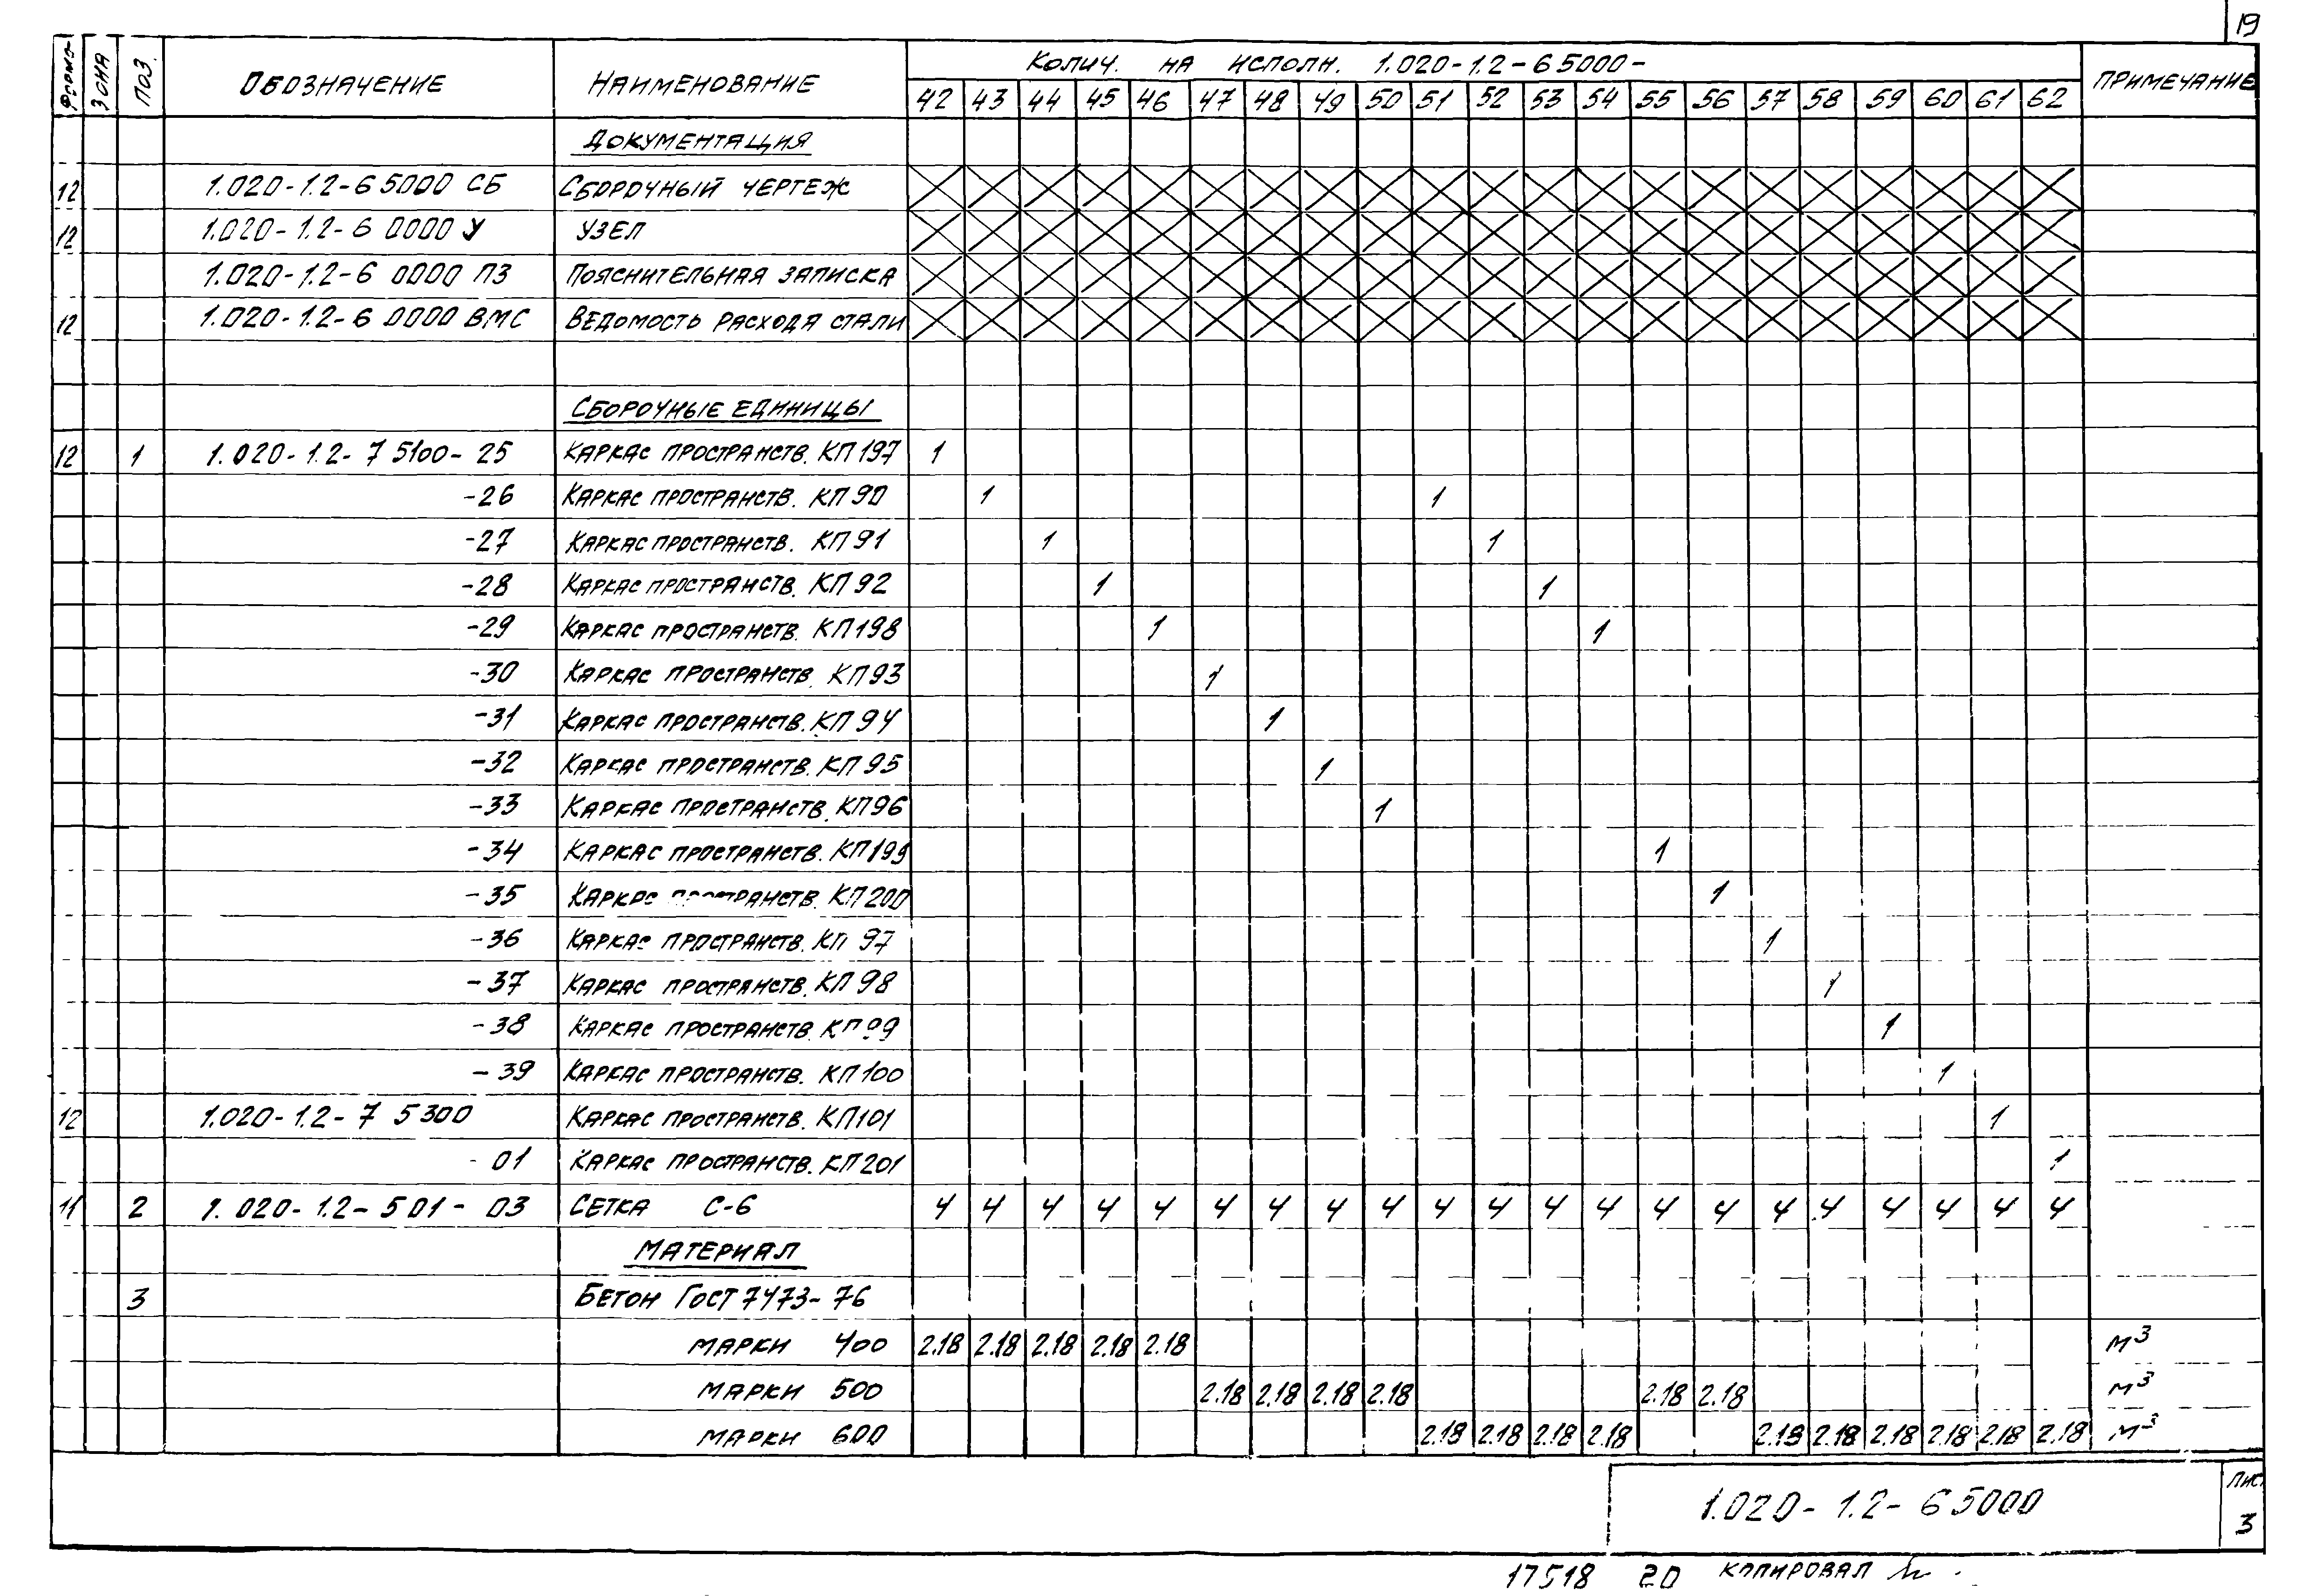 19
Формо- Зона Поз. Обозначение Наименование Колич. на исполн. 1.020-1.2-6 5000- Примечание
42 43 44 45 46 47 48 49 50 51 52 53 54 55 56 57 58 59 60 61 62
Документация
12 1.020-1.2-6 5000 СБ Сборочный чертеж
12 1.020-1.2-6 0000 У Узел
1.020-1.2-6 0000 ПЗ Пояснительная записка
12 1.020-1.2-6 0000 ВМС Ведомость расхода стали
Сборочные единицы
12 1 1.020-1.2-7 5100-25 Каркас пространств. КП197 1
-26 Каркас пространств. КП90 1 1
-27 Каркас пространств. КП91 1 1
-28 Каркас пространств. КП92 1 1
-29 Каркас пространств. КП198 1 1
-30 Каркас пространств. КП93 1
-31 Каркас пространств. КП94 1
-32 Каркас пространств. КП95 1
-33 Каркас пространств. КП96 1
-34 Каркас пространств. КП199 1
-35 Каркас пространств. КП200 1
-36 Каркас пространств. КП 97 1
-37 Каркас пространств. КП98 1
-38 Каркас пространств КП99 1
-39 Каркас пространств. КП100 1
12 1.020-1.2-7 5300 Каркас пространств. КП101 1
-01 Каркас пространств. КП201 1
11 2 1.020-1.2-501-03 Сетка С-6 4 4 4 4 4 4 4 4 4 4 4 4 4 4 4 4 4 4 4 4 4
Материал
3 Бетон ГОСТ 7473-76
марки 400 2.18 2.18 2.18 2.18 2.18 м³
марки 500 2.18 2.18 2.18 2.18 2.18 2.18 м³
марки 600 2.18 2.18 2.18 2.18 2.18 2.18 2.18 2.18 2.18 2.18 м³
1.020-1.2-6 5000
Лис
3
17518 20 Копировал